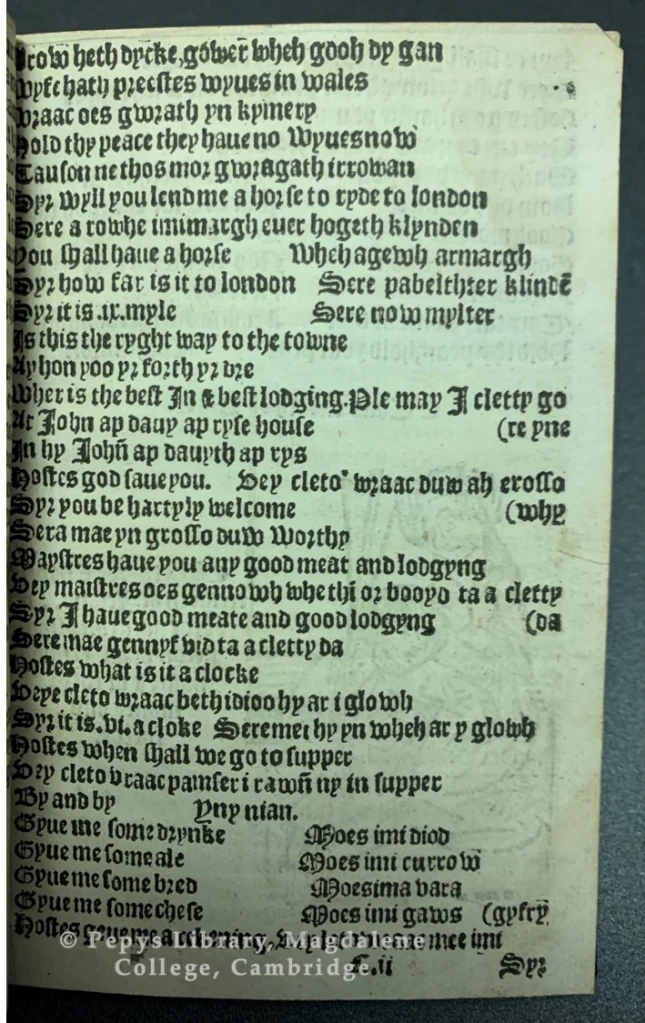 Trow heth dycke, gówer wheh gooh dy gan
wyfe hath preestes wyues in wales
wraac oes gwrath yn kymery
hold thy peace they haue no Wyuesnow
Tauson ne thos mor gwragath irrowan
Syr wyll you lend me a horse to ryde to london
Sere a rowhe imimargh euer hogeth klynden
You shall haue a horse Whchagewh armargh
Syr how far is it to london Sere pabelthter klindē
Syr it is .ix.myle Sere now mylter
Is this the ryght way to the towne
Ay hon yoo yr forth yr dre
Wher is the best In & best lodging. Ple may I cletty go
At John ap dauy ap ryse house (re yne
In hy Johñ ap dauyth ap rys
Hostes god saue you. Dey cleto wraac duw ah erosso
Syr you be hartyly welcome (why
Sera mae yn grosso duw Worthy
Maystres haue you any good meat and lodgyng
Dey maistres oes gennowh whethī or booyd ta a cletty
Syr I haue good meate and good lodgyng (da
Sere mae gennyf vid ta a cletty da
Hostes what is it a clocke
Deye cleto wraac beth idioo hy ar i glowh
Syr it is .vi. a cloke Seremei hy yn wheh ar y glowh
Hostes when shall we go to supper
Dey cleto vraac pamser i rawñ ny in supper
By and by Yny nian.
Gyue me some drynke Moes imi diod
Gyue me some ale Moes imi currow
Gyue me some bred Moesima vara
Gyue me some chese Moes imi gaws (gyfry
Hostes geue me a rekening, mee imi
ii Syr
© Pepys Library, Magdalene
College, Cambridge